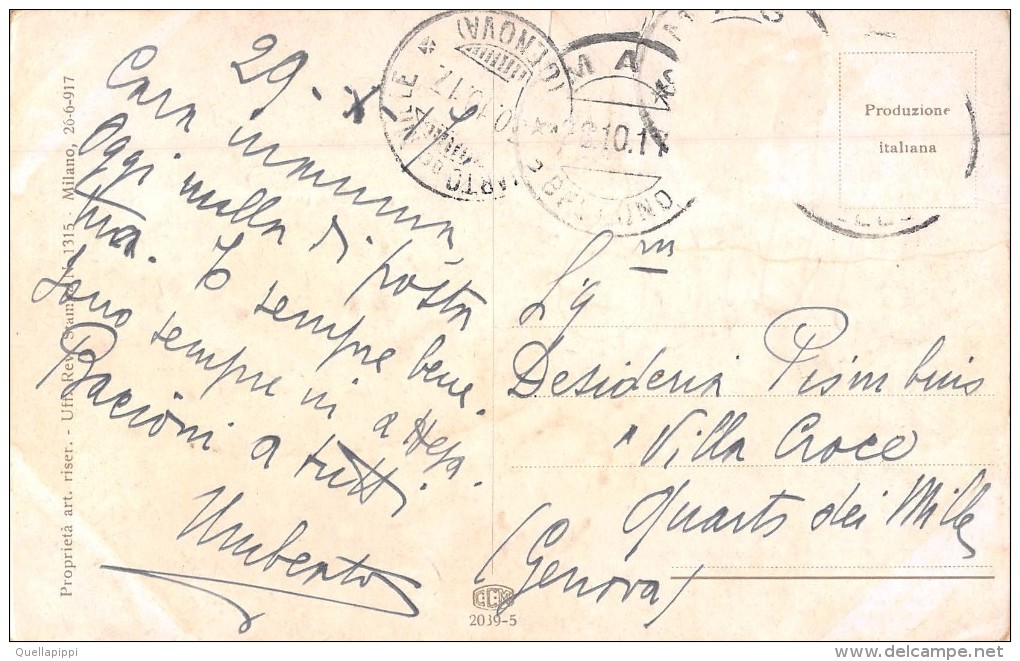 29.X.17
Cara mamma,
Oggi nulla di posta
tua. Io sempre bene.
Sono sempre in attesa.
Bacioni a tutti.
Umberto
Proprietà art. riser. - Uff. Rev. Stampa N. 1315 - Milano, 26-6-917
(GENOVA)
29.10.17
Produzione
italiana
Sig.ra
Desideria
Villa Croce
Quarto dei Mille
(Genova)
CCM
2039-5
Quellapippi